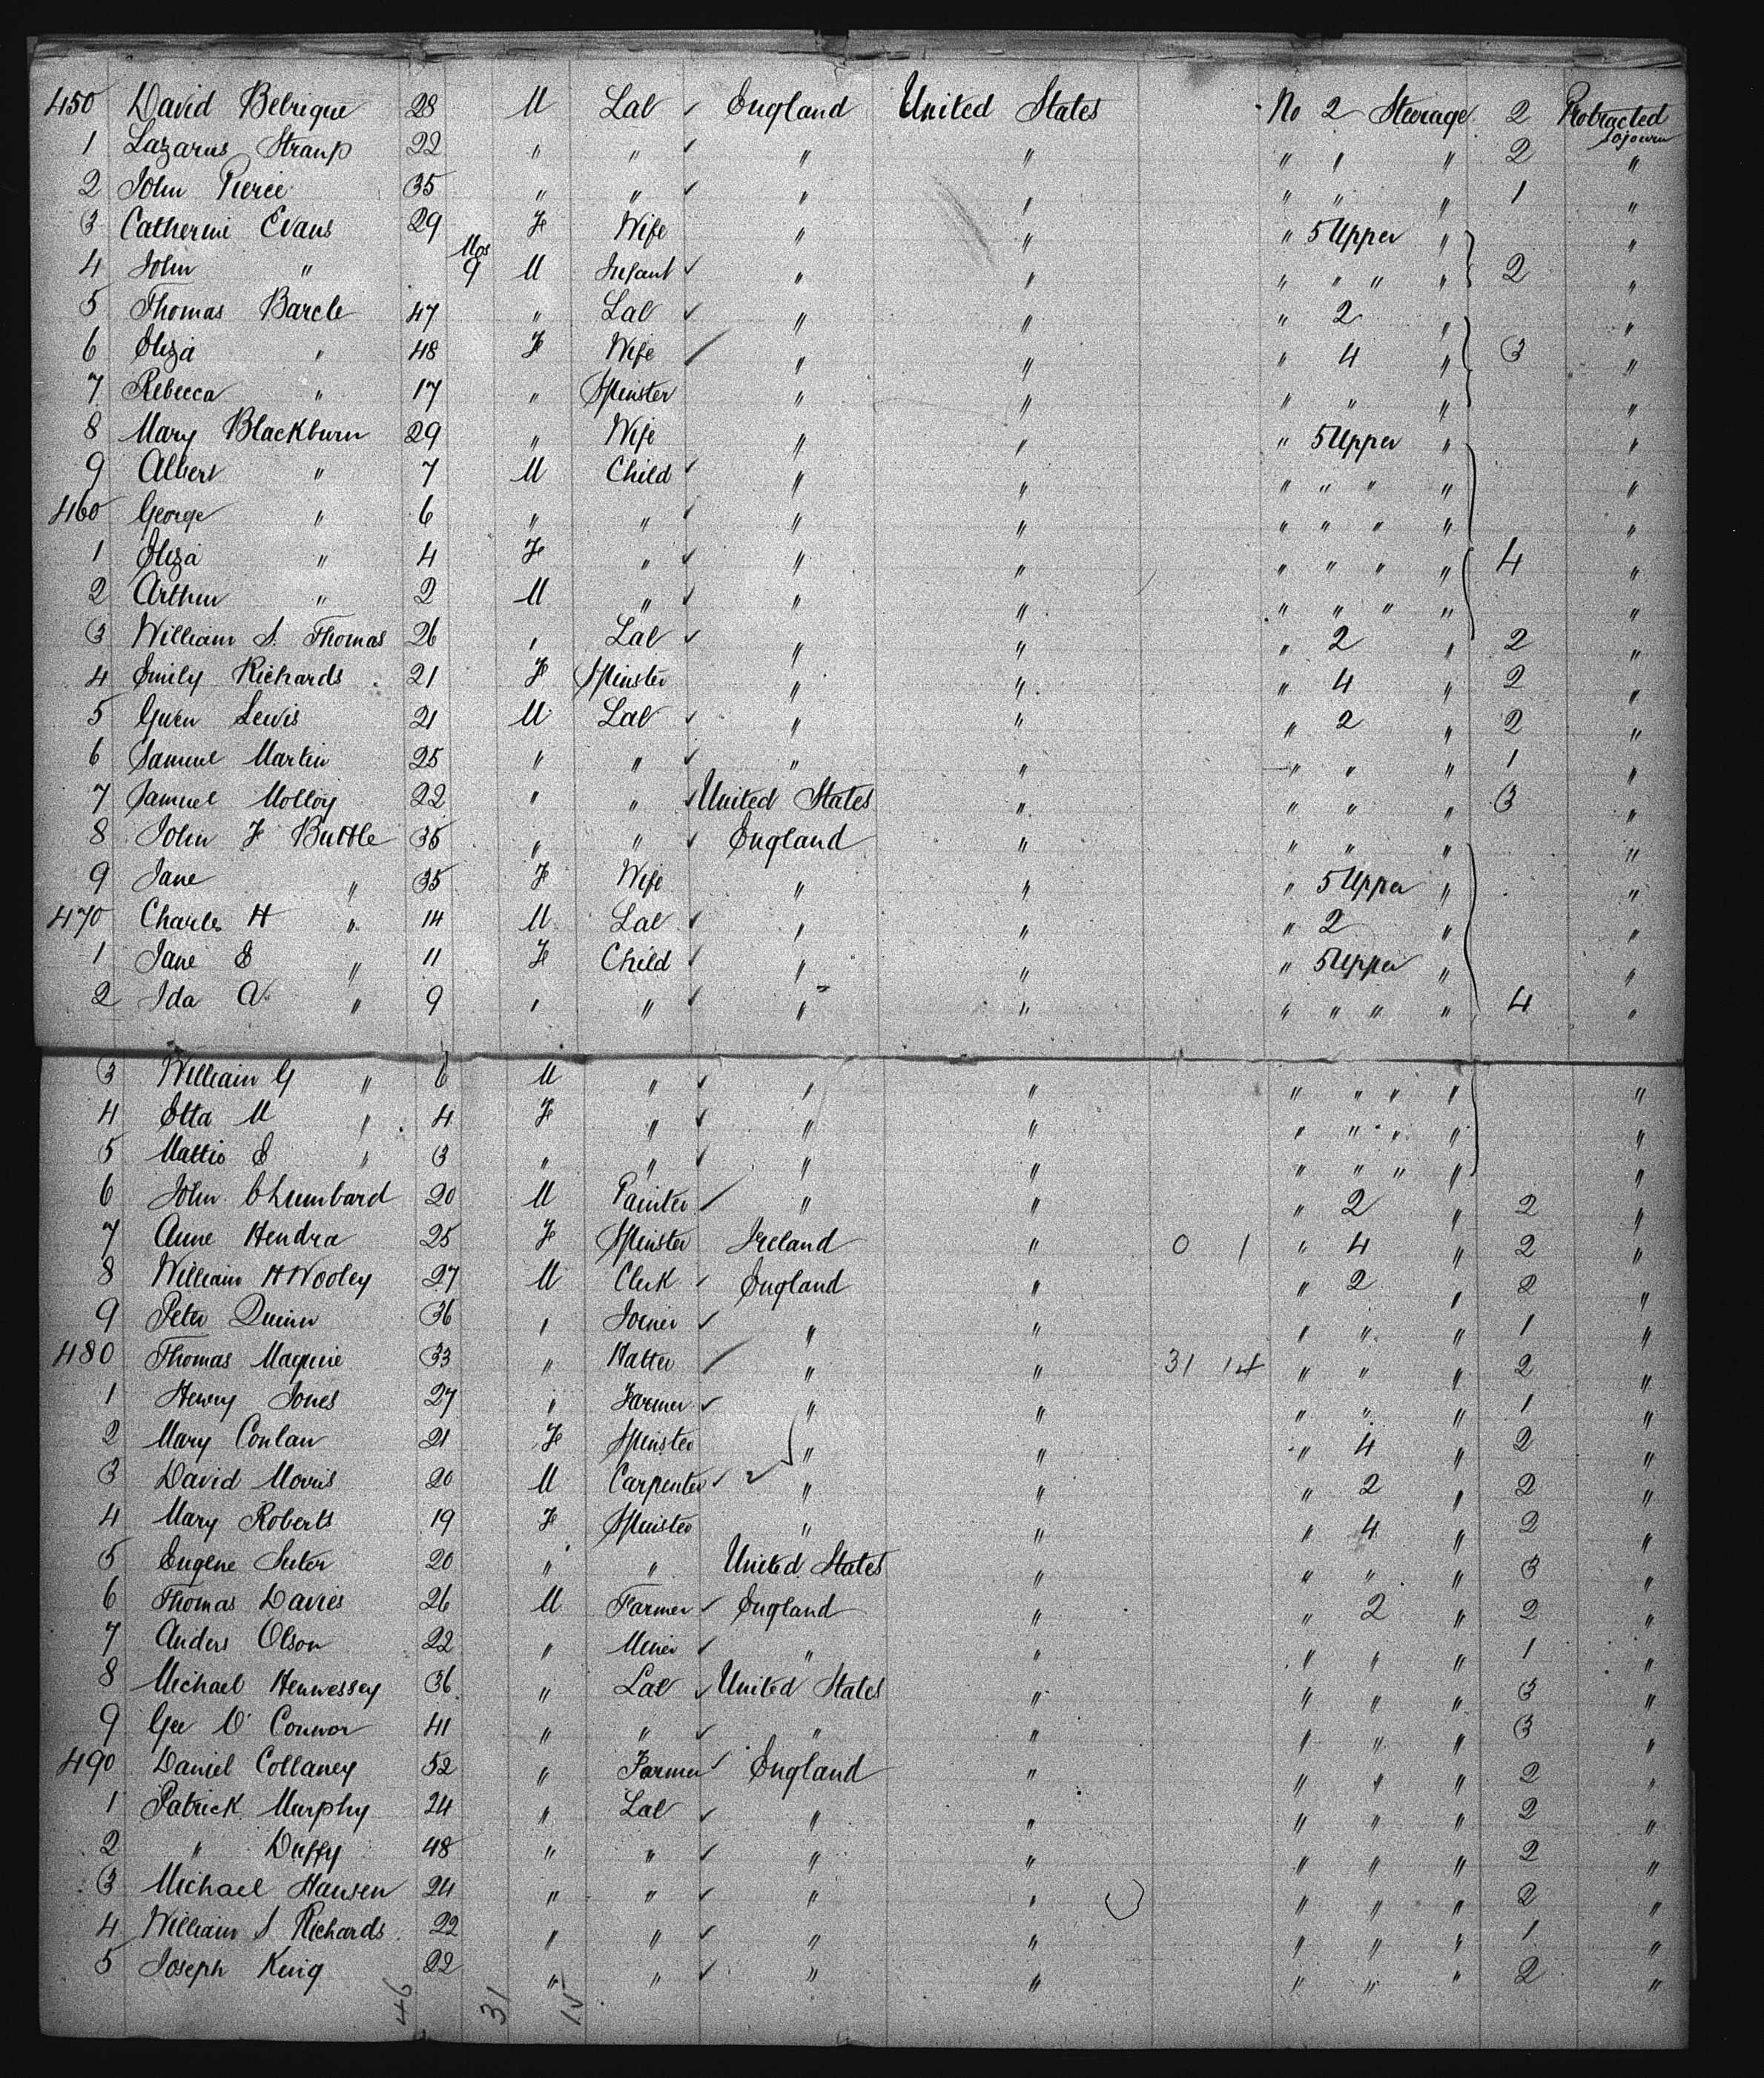 450 David Belrique 28 M Lab ✓ England United States No 2 Steerage 2 Protracted Sojourn
1 Lazarus Straup 22 " " ✓ " " " " " 2 "
2 John Pierce 35 " " ✓ " " " " " 1 "
3 Catherine Evans 29 F Wife " " " 5 Upper " "
4 John " Mos 9 M Infant ✓ " " " " " " 2 "
5 Thomas Barcle 47 " Lab ✓ " " " 2 " "
6 Eliza " 48 F Wife ✓ " " " 4 " 3 "
7 Rebecca " 17 " Spinster " " " " " "
8 Mary Blackburn 29 " Wife " " " 5 Upper " "
9 Albert " 7 M Child ✓ " " " " " " "
460 George " 6 " " ✓ " " " " " " "
1 Eliza " 4 F " ✓ " " " " " " 4 "
2 Arthur " 2 M " ✓ " " " " " " "
3 William S. Thomas 26 " Lab ✓ " " " 2 " 2 "
4 Emily Richards 21 F Spinster " " " 4 " 2 "
5 Gwen Lewis 21 M Lab ✓ " " " 2 " 2 "
6 Samuel Martin 25 " " ✓ " " " " " 1 "
7 Samuel Molloy 22 " " ✓ United States " " " " 3 "
8 John F Buttle 35 " " ✓ England " " " " "
9 Jane " 35 F Wife " " " 5 Upper " "
470 Charles H " 14 M Lab ✓ " " " 2 " "
1 Jane E " 11 F Child ✓ " " " 5 Upper " "
2 Ida A " 9 " " ✓ " " " " " " 4 "
3 William G " 6 M " ✓ " " " " " " "
4 Etta M " 4 F " ✓ " " " " " " "
5 Mattie E " 3 " " ✓ " " " " " " "
6 John Chumbard 20 M Painter ✓ " " " 2 " 2 "
7 Anne Hendra 25 F Spinster Ireland " 0 1 " 4 " 2 "
8 William H Wooley 27 M Clerk ✓ England " " 2 " 2 "
9 Peter Quinn 36 " Joiner ✓ " " " " " 1 "
480 Thomas Maguire 33 " Hatter ✓ " " 31 14 " " " 2 "
1 Henry Jones 27 " Farmer ✓ " " " " " 1 "
2 Mary Conlan 21 F Spinster " " " 4 " 2 "
3 David Morris 20 M Carpenter ✓ " " " 2 " 2 "
4 Mary Roberts 19 F Spinster " " " 4 " 2 "
5 Eugene Suter 20 " " United States " " " " 3 "
6 Thomas Davies 26 M Farmer ✓ England " " 2 " 2 "
7 Anders Olson 22 " Miner ✓ " " " " " 1 "
8 Michael Hennessey 36 " Lab ✓ United States " " " " 3 "
9 Geo O'Connor 41 " " ✓ " " " " " 3 "
490 Daniel Collaney 52 " Farmer ✓ England " " " " 2 "
1 Patrick Murphy 24 " Lab ✓ " " " " " 2 "
2 " Duffy 48 " " ✓ " " " " " 2 "
3 Michael Hansen 24 " " ✓ " " " " " 2 "
4 William S Richards 22 " " ✓ " " " " " 1 "
5 Joseph King 22 " " ✓ " " " " " 2 "
46 31 15